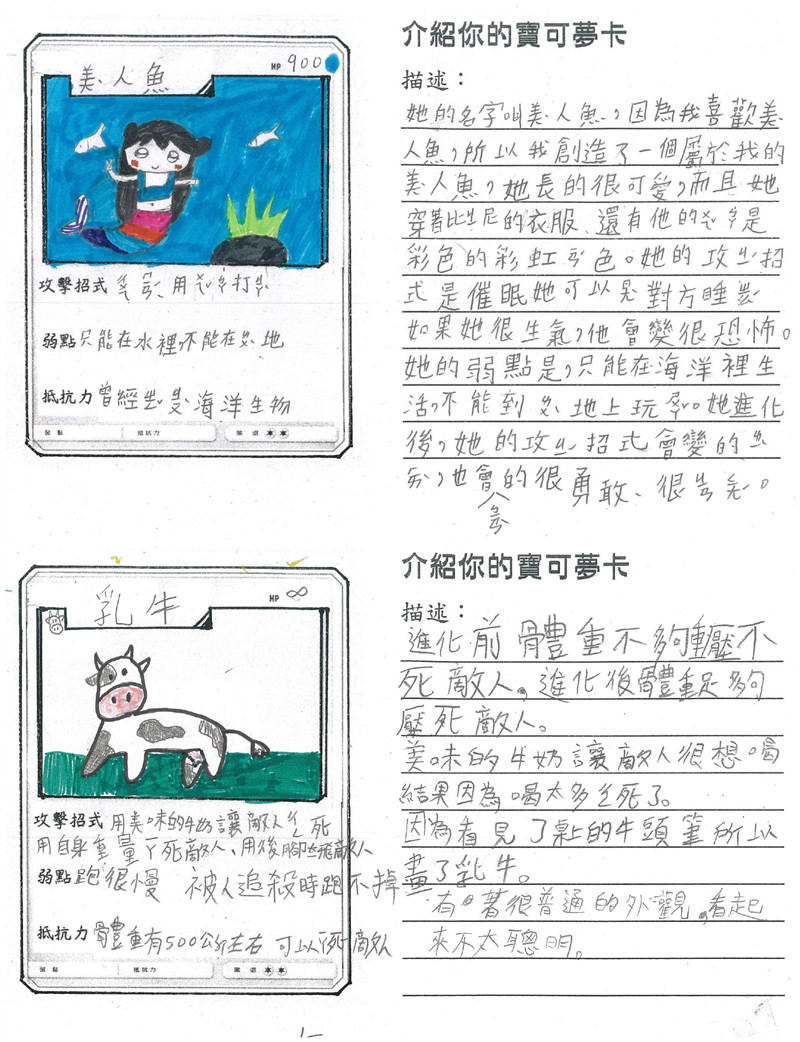 美人魚
HP 900
攻擊招式 ㄘㄨㄟ ㄇㄧㄢˊ 用ㄨㄟˇ ㄅㄚ打
弱點 只能在水裡,不能在ㄌㄨˋ地
抵抗力 曾經 海洋生物
弱點 抵抗力 撤退
介紹你的寶可夢卡
描述:
她的名字叫美人魚,因為我喜歡美
人魚,所以我創造了一個屬於我的
美人魚,她長的很可愛,而且她
穿著比ㄐㄧ尼的衣服、還有他的ㄨㄟˇ ㄅㄚ是
彩色的彩虹 色。她的攻ㄐㄧ招
式是催眠她可以 對方睡
如果她很生氣,他會變很恐怖。
她的弱點是,只能在海洋裡生
活,不能到ㄌㄨˋ地上玩 。她進化
後,她的攻ㄐㄧ招式會變的
,也會 的很勇敢、很 。
乳牛
HP ∞
攻擊招式 用美味的牛奶讓敵人ㄔㄥ死
用自身重量ㄧㄚ死敵人、用後腳ㄊㄧ飛敵人
弱點 跑很慢 被人追殺時跑不掉
抵抗力 體重有500公斤左右 可以ㄧㄚ死敵人
弱點 抵抗力 撤退
介紹你的寶可夢卡
描述:
進化前體重不夠重壓不
死敵人,進化後體重足夠
壓死敵人。
美味的牛奶讓敵人很想喝
結果因為喝太多ㄔㄥ死了。
因為看見了桌上的牛頭筆所以
畫了乳牛。
有著很普通的外觀,看起
來不太聰明。